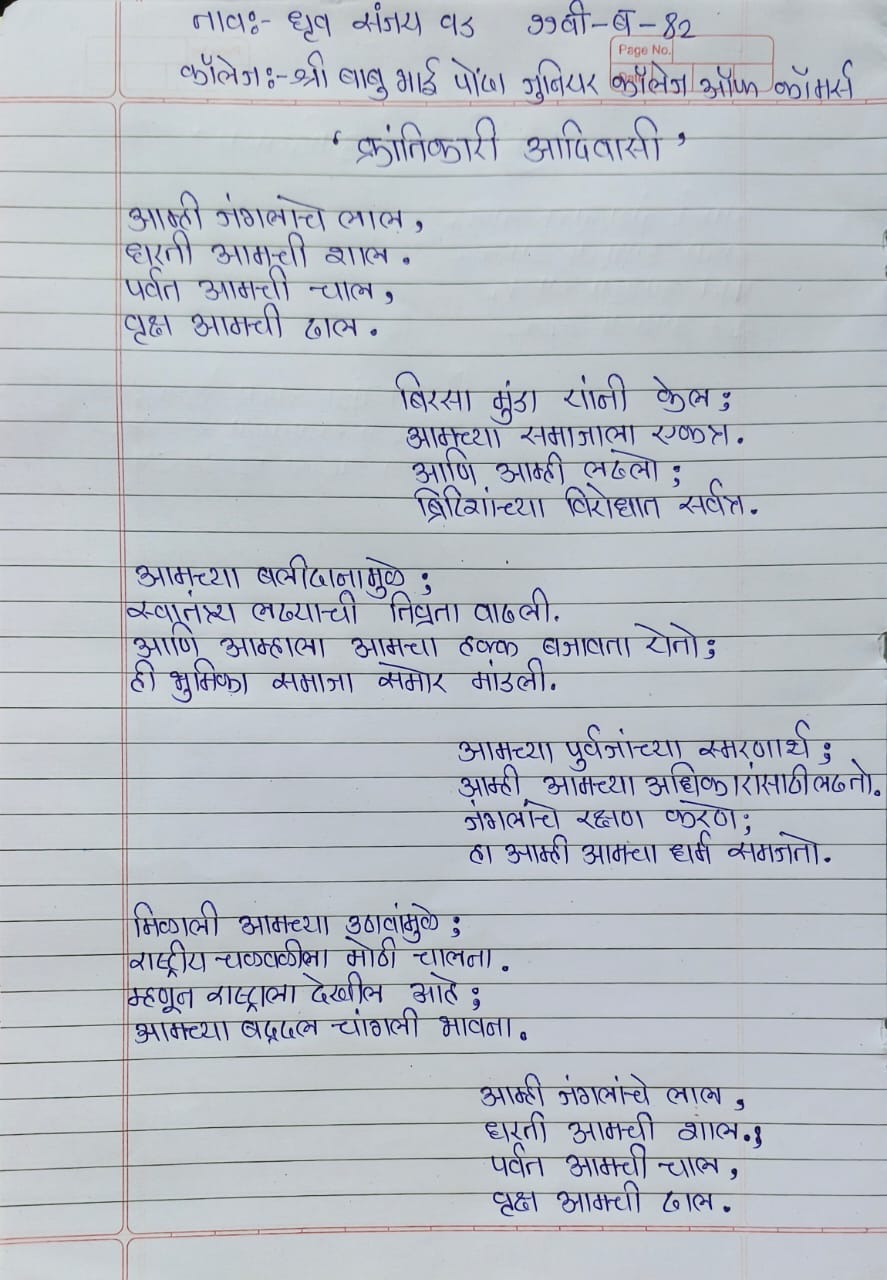 नाव:- ध्रुव संजय वड ११वी-ब-82
Page No.
कॉलेज:- श्री बाबु भाई पोंढा जुनियर कॉलेज ऑफ कॉमर्स
' क्रांतिकारी आदिवासी '
आम्ही जंगलांचे लाल,
धरती आमची शाल.
पर्वत आमची चाल,
वृक्ष आमची ढाल.
बिरसा मुंडा यांनी केल;
आमच्या समाजाला एकत्र.
आणि आम्ही लढलो;
ब्रिटिशांच्या विरोधात सर्वत्र.
आमच्या बलीदानामुळे;
स्वातंत्र्य लढ्याची तिव्रता वाढली.
आणि आम्हाला आमचा हक्क बजावता येतो;
ही भुमिका समाजा समोर मांडली.
आमच्या पुर्वजांच्या स्मरणार्थ;
आम्ही आमच्या अधिकारांसाठी लढतो.
जंगलांचे रक्षण करणे;
हा आम्ही आमचा धर्म समजतो.
मिळाली आमच्या उठावांमुळे;
राष्ट्रीय चळवळीला मोठी चालना.
म्हणून राष्ट्राला देखील आहे;
आमच्या बद्रदल चांगली भावना.
आम्ही जंगलांचे लाल,
धरती आमची शाल.;
पर्वत आमची चाल,
वृक्ष आमची ढाल.